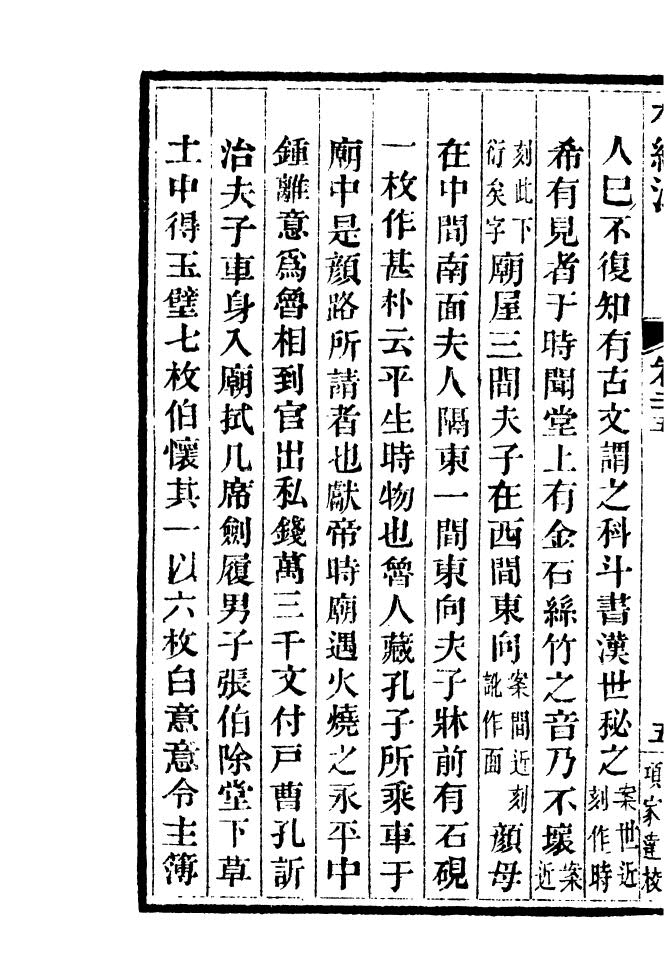 水經注 卷二十五 五 項家達校
人已不復知有古文謂之科斗書漢世秘之案世近刻作時
希有見者于時聞堂上有金石絲竹之音乃不壞案近
刻此下衍矣字廟屋三間夫子在西間東向案間近刻訛作面顔母
在中間南面夫人隔東一間東向夫子牀前有石硯
一枚作甚朴云平生時物也魯人藏孔子所乘車于
廟中是顔路所請者也獻帝時廟遇火燒之永平中
鍾離意爲魯相到官出私錢萬三千文付戸曹孔訢
治夫子車身入廟拭几席劍履男子張伯除堂下草
土中得玉璧七枚伯懷其一以六枚白意意令主簿